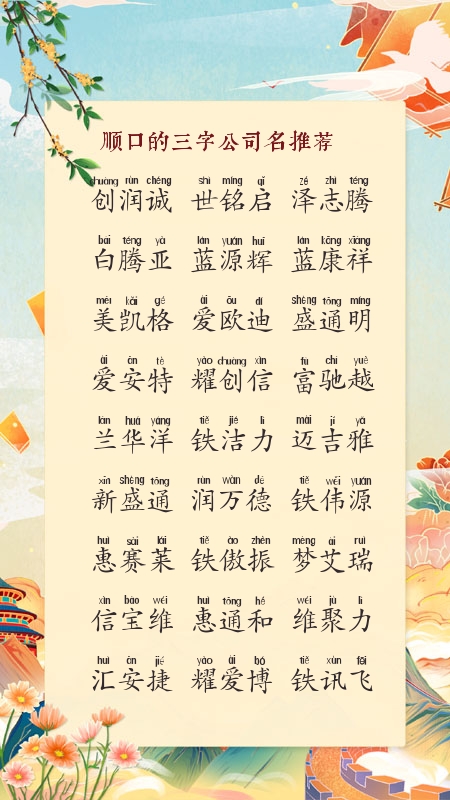 顺口的三字公司名推荐
chuàng rùn chéng shì míng qǐ zé zhì téng
创润诚 世铭启 泽志腾
bái téng yà lán yuán huī lán kāng xiáng
白腾亚 蓝源辉 蓝康祥
měi kǎi gé ài ōu dí shèng tōng míng
美凯格 爱欧迪 盛通明
ài ān tè yào chuàng xìn fù chí yuè
爱安特 耀创信 富驰越
lán huá yáng tiě jié lì mài jí yǎ
兰华洋 铁洁力 迈吉雅
xīn shèng tōng rùn wàn dé tiě wěi yuán
新盛通 润万德 铁伟源
huì sài lái tiě ào zhèn mèng ài ruì
惠赛莱 铁傲振 梦艾瑞
xìn bǎo wéi huì tōng hé wéi jù lì
信宝维 惠通和 维聚力
huì ān jié yào ài bó tiě xùn fēi
汇安捷 耀爱博 铁讯飞